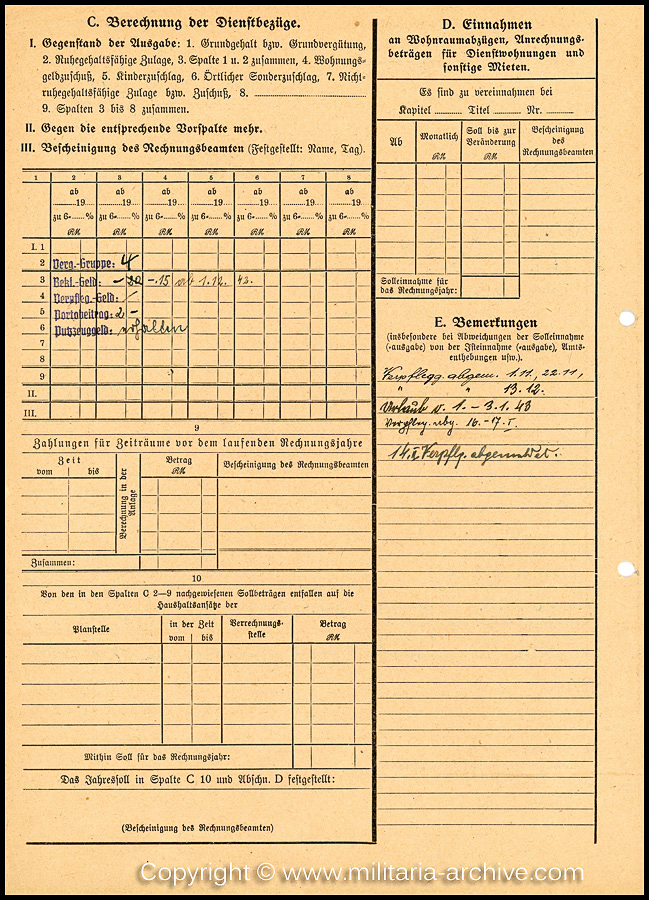 C. Berechnung der Dienstbezüge.
I. Gegenstand der Ausgabe: 1. Grundgehalt bzw. Grundvergütung,
2. Ruhegehaltsfähige Zulage, 3. Spalte 1 u. 2 zusammen, 4. Wohnungs-
geldzuschuß, 5. Kinderzuschlag, 6. Örtlicher Sonderzuschlag, 7. Nicht-
ruhegehaltsfähige Zulage bzw. Zuschuß, 8. ....................
9. Spalten 3 bis 8 zusammen.
II. Gegen die entsprechende Vorspalte mehr.
III. Bescheinigung des Rechnungsbeamten (Festgestellt: Name, Tag).
1 2 3 4 5 6 7 8
ab ab ab ab ab ab ab
19... 19... 19... 19... 19... 19... 19...
zu 6-......% zu 6-......% zu 6-......% zu 6-......% zu 6-......% zu 6-......% zu 6-......%
RM RM RM RM RM RM RM
I. 1
2 Verg.-Gruppe: 4
3 Bekl.-Geld: -,20 -.15 ab 1.12. 42.
4 Verpfleg.-Geld: /
5 Portobeitrag: 2 -
6 Putzzeuggeld: erhalten
7
8
9
II.
III.
9
Zahlungen für Zeiträume vor dem laufenden Rechnungsjahre
Zeit
vom bis
Berechnung in der Anlage
Betrag
RM
Bescheinigung des Rechnungsbeamten
Zusammen:
10
Von den in den Spalten C 2—9 nachgewiesenen Sollbeträgen entfallen auf die
Haushaltsansätze der
Planstelle
in der Zeit
vom bis
Verrechnungs-
stelle
Betrag
RM
Mithin Soll für das Rechnungsjahr:
Das Jahressoll in Spalte C 10 und Abschn. D festgestellt:
(Bescheinigung des Rechnungsbeamten)
D. Einnahmen
an Wohnraumabzügen, Anrechnungs-
beträgen für Dienstwohnungen und
sonstige Mieten.
Es sind zu vereinnahmen bei
Kapitel ........... Titel ........... Nr. ...........
Ab
Monatlich
RM
Soll bis zur
Veränderung
RM
Bescheinigung
des
Rechnungsbeamten
Solleinnahme für
das Rechnungsjahr:
E. Bemerkungen
(insbesondere bei Abweichungen der Solleinnahme
(-ausgabe) von der Isteinnahme (-ausgabe), Amts-
enthebungen usw.).
Verpflegg. abgem. 1.11., 22.11,
" " 13.12.
Urlaub v. 1. - 3.1.43
Verpfleg. abg. 16. - 7. I.
14. I. Verpflg. abgemeldet.
Copyright © www.militaria-archive.com